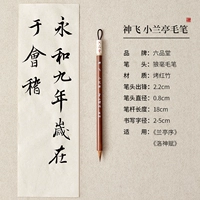 永和九年歲在
于會稽
神飞 小兰亭毛笔
品 牌：六品堂
笔 头：狼毫毛笔
材 质：烤红竹
笔头出锋：2.2cm
笔头直径：0.8cm
笔杆长度：18cm
书写字径：2-5cm
适 用：《兰亭序》
《洛神赋》